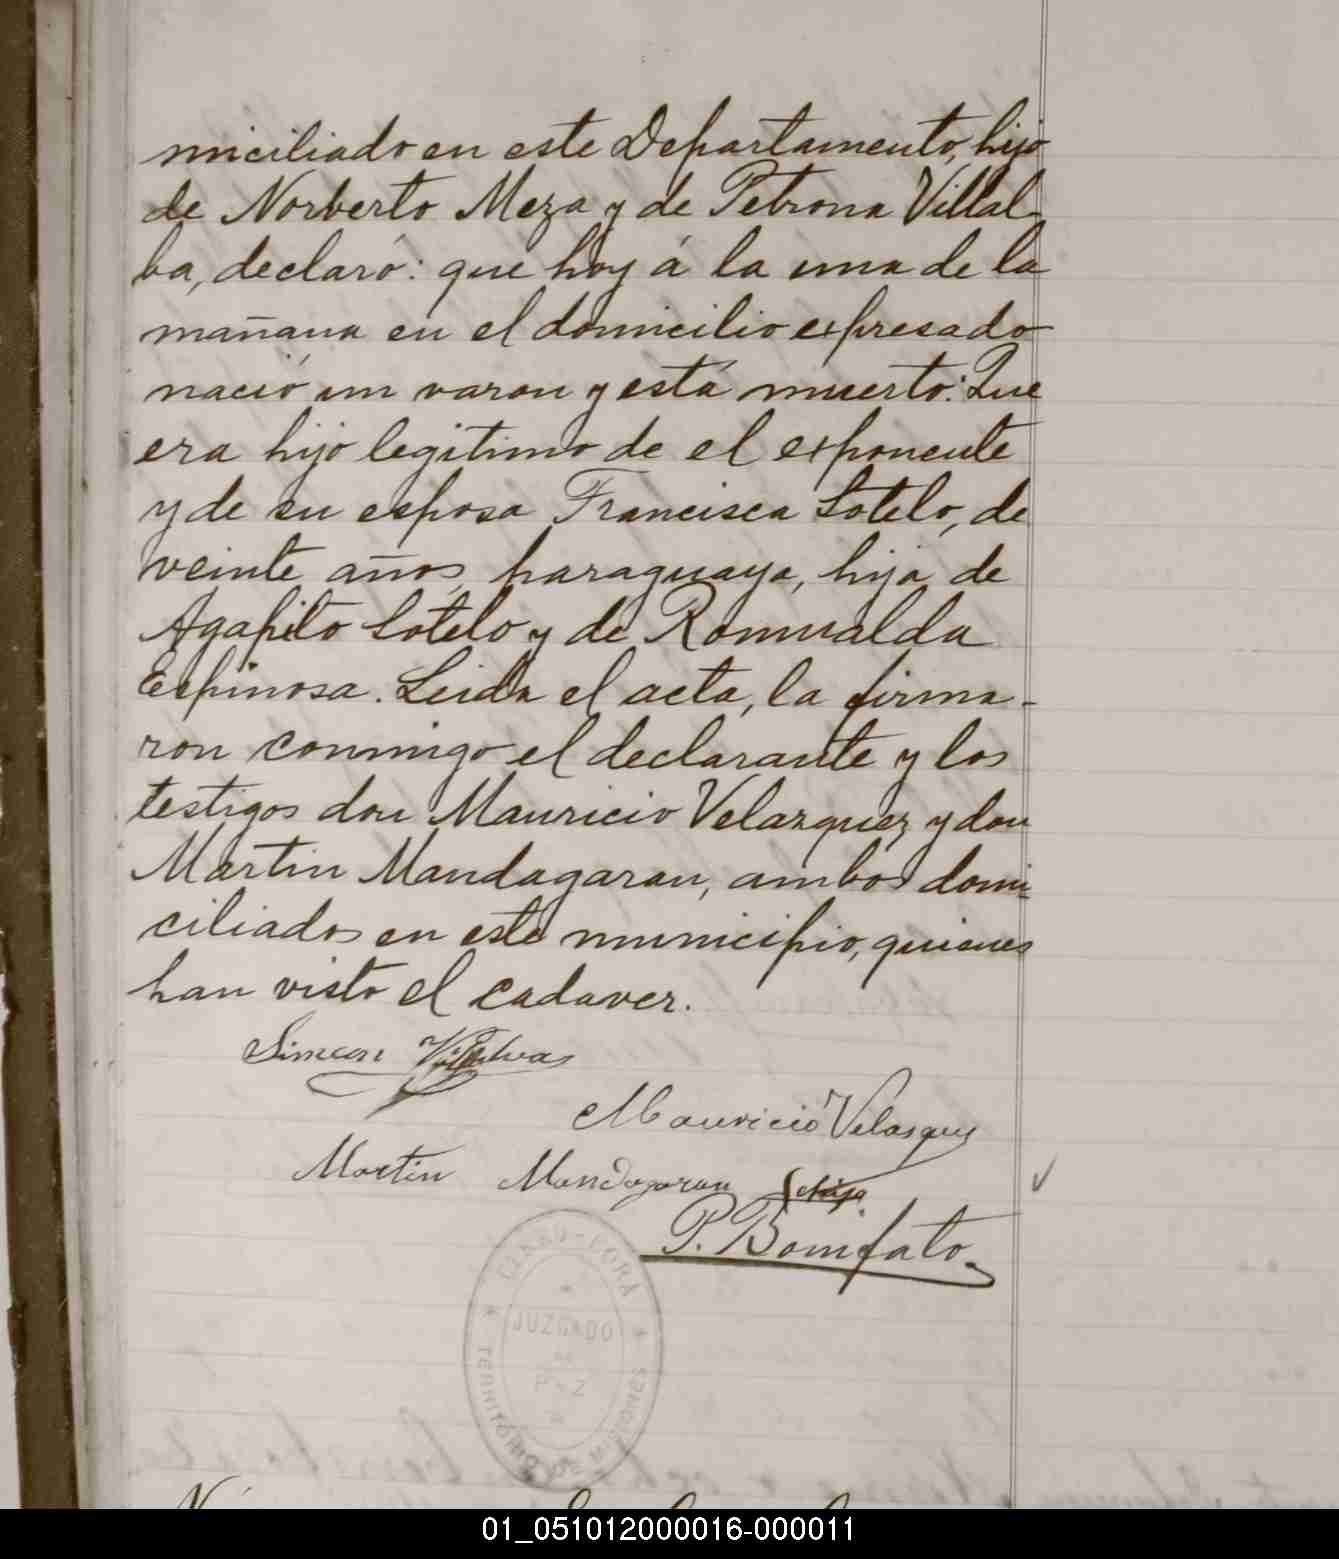 miciliado en este Departamento, hijo
de Norberto Meza y de Petrona Villal-
ba, declaró: que hoy á la una de la
mañana en el domicilio expresado
nació un varon y está muerto: Que
era hijo legitimo de el exponente
y de su esposa Francisca Sotelo, de
veinte años, paraguaya, hija de
Agapito Sotelo y de Romualda
Espinosa. Leida el acta, la firma-
ron conmigo el declarante y los
testigos don Mauricio Velazquez y don
Martin Mandagaran, ambos domi-
ciliados en este municipio, quienes
han visto el cadaver.
Simeon
Mauricio Velasquez
Martin Mandagaran
P. Bonifato
CERRO-CORÁ
JUZGADO
DE
PAZ
TERRITORIO DE MISIONES
01_051012000016-000011